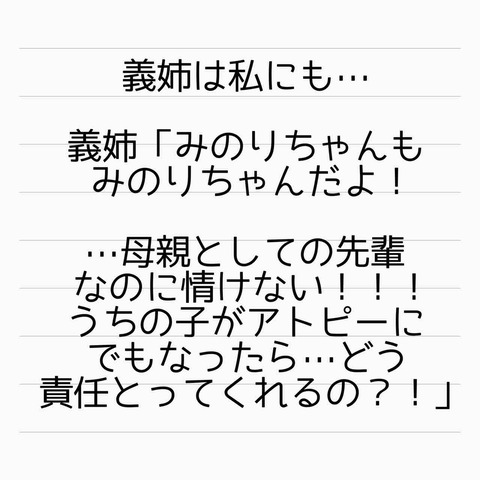 義姉は私にも…
義姉「みのりちゃんも
みのりちゃんだよ！
…母親としての先輩
なのに情けない！！！
うちの子がアトピーに
でもなったら…どう
責任とってくれるの？！」